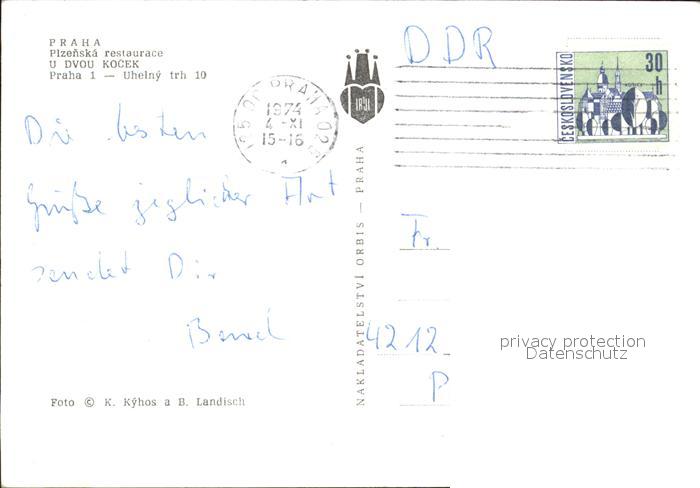 PRAHA
Plzeňská restaurace
U DVOU KOČEK
Praha 1 — Uhelný trh 10
DDR
ČESKOSLOVENSKO
30 h
1974
4.-XI
15-16
Die besten
Grüße jeglicher Art
sendet Dir
Bernd
NAKLADATELSTVÍ ORBIS — PRAHA
Fr.
4212
P
privacy protection
Datenschutz
Foto © K. Kýhos a B. Landisch